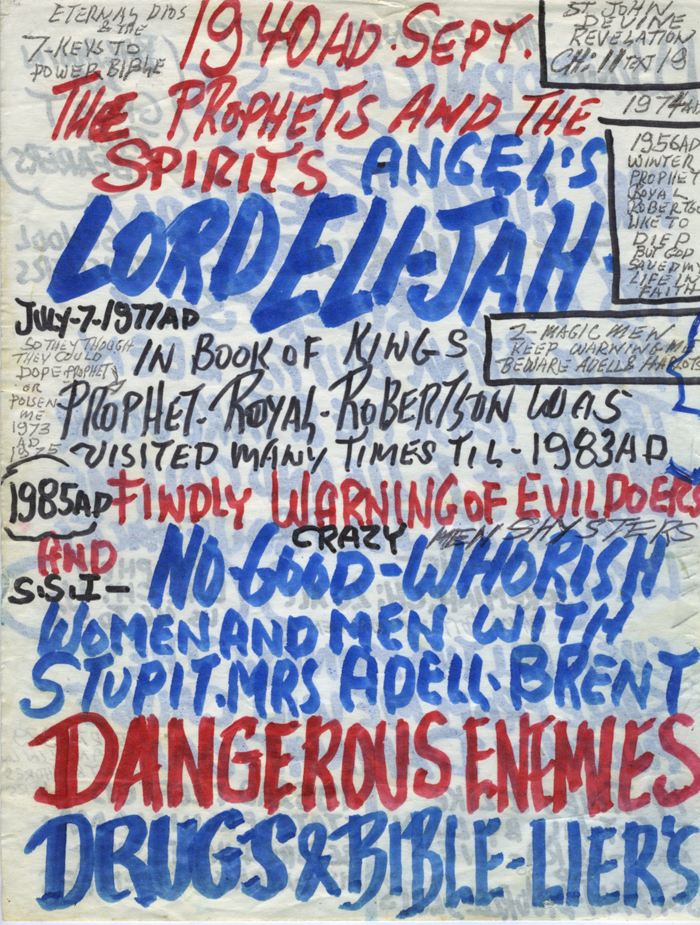 ETERNAL DIOS
& THE
7-KEYS TO
POWER BIBLE
1940 AD. SEPT.
ST. JOHN
DEVINE
REVELATION
CH: 11 TEXT 19
1974AD
THE PROPHETS AND THE
SPIRITS ANGEL'S
LORD ELI-JAH.
1956AD
WINTER
PROPHET
ROYAL
ROBERTSON
LIKE TO
DIED
BUT GOD
SAVED MY
LIFE IN
FAITH
JULY-7-1977AD
2-MAGIC MEN
KEEP WARNING ME
BEWARE ADELL HARLOTS
SO THEY THOUGH
THEY COULD
DOPE PROPHET
OR
POISEN
ME
1973
AD
1975
IN BOOK OF KINGS
PROPHET. ROYAL-ROBERTSON WAS
VISITED MANY TIMES TIL-1983AD
1985AD FINDLY WARNING OF EVIL DOERS
AND CRAZY MEN SHYSTERS
S.S.I- NO-GOOD-WHORISH
WOMEN AND MEN WITH
STUPIT. MRS ADELL. BRENT
DANGEROUS ENEMIES
DRUGS & BIBLE-LIER'S